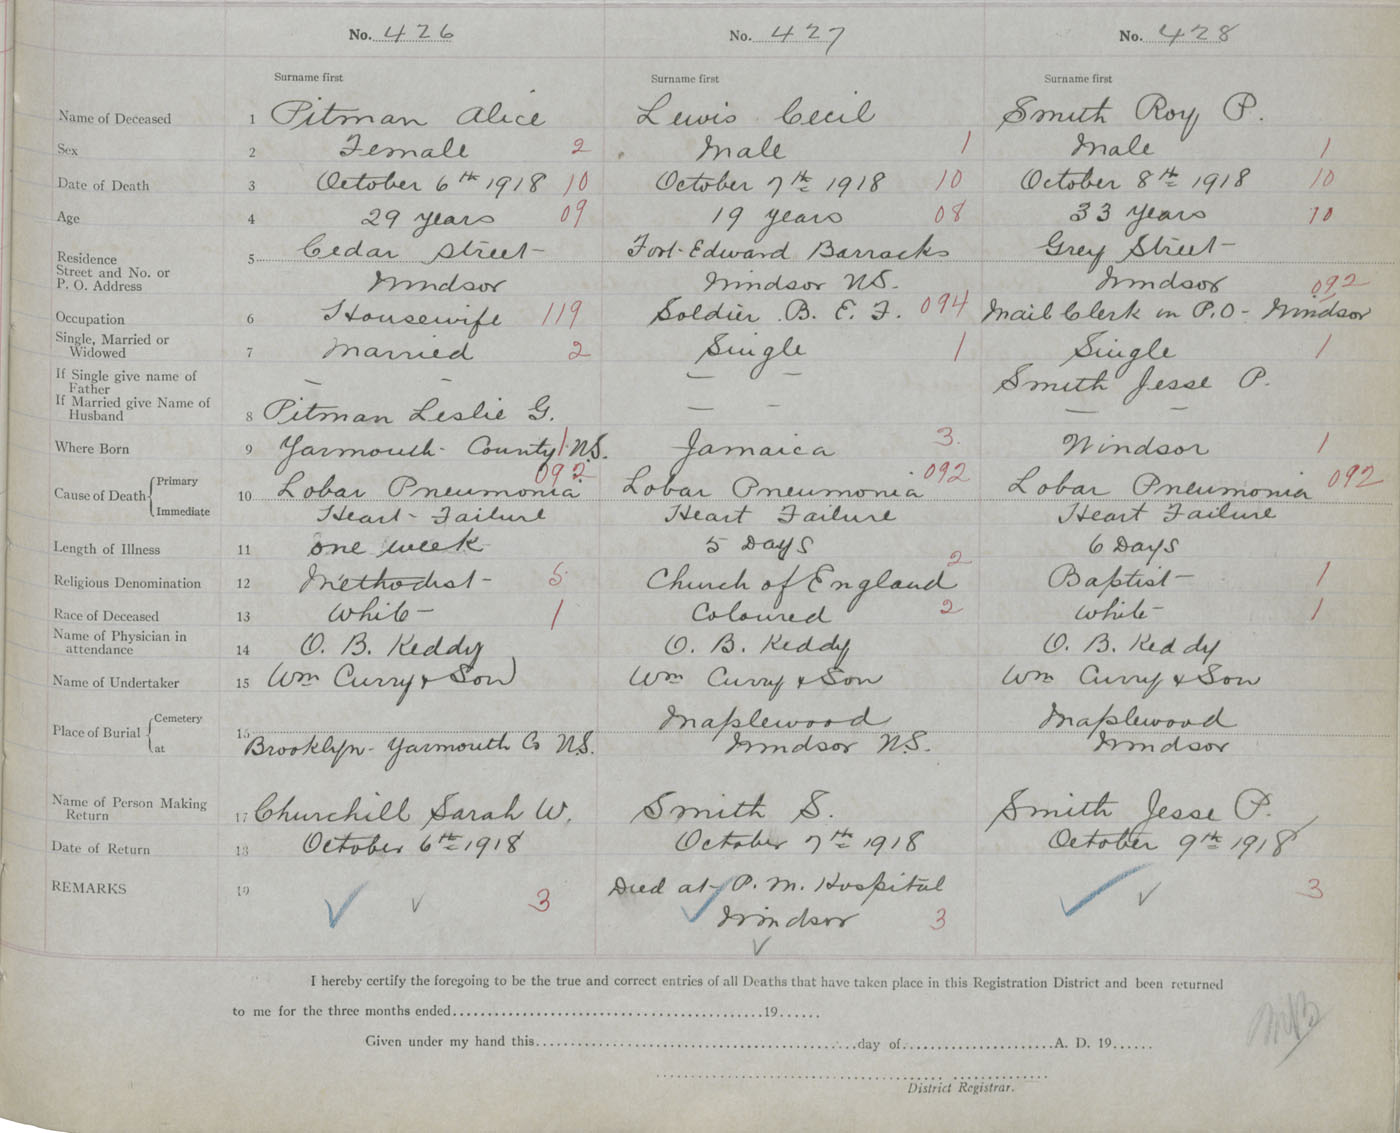 No. 426 No. 427 No. 428
Surname first Surname first Surname first
Name of Deceased 1 Pitman Alice Lewis Cecil Smith Roy P.
Sex 2 Female 2 Male 1 Male 1
Date of Death 3 October 6th 1918 10 October 7th 1918 10 October 8th 1918 10
Age 4 29 years 09 19 years 08 33 years 10
Residence Street and No. or P. O. Address 5 Cedar Street Fort Edward Barracks Grey Street
Windsor Windsor N.S. Windsor 092
Occupation 6 Housewife 119 Soldier B. E. F. 094 Mail Clerk in P.O - Windsor
Single, Married or Widowed 7 Married 2 Single 1 Single 1
If Single give name of Father — — — — Smith Jesse P.
If Married give Name of Husband 8 Pitman Leslie G. — — — —
Where Born 9 Yarmouth County N.S. 1 Jamaica 3. Windsor 1
Cause of Death Primary 10 Lobar Pneumonia 092 Lobar Pneumonia 092 Lobar Pneumonia 092
Immediate Heart Failure Heart Failure Heart Failure
Length of Illness 11 one week 5 Days 6 Days
Religious Denomination 12 Methodist 5 Church of England 2 Baptist 1
Race of Deceased 13 White 1 Coloured 2 White 1
Name of Physician in attendance 14 O. B. Keddy O. B. Keddy O. B. Keddy
Name of Undertaker 15 Wm Curry & Son Wm Curry & Son Wm Curry & Son
Place of Burial Cemetery 15 Maplewood Maplewood
at Brooklyn - Yarmouth Co N.S. Windsor N.S. Windsor
Name of Person Making Return 17 Churchill Sarah W. Smith S. Smith Jesse P.
Date of Return 18 October 6th 1918 October 7th 1918 October 9th 1918
REMARKS 19 3 Died at P. M. Hospital 3
Windsor 3
I hereby certify the foregoing to be the true and correct entries of all Deaths that have taken place in this Registration District and been returned
to me for the three months ended........................................19......
Given under my hand this........................................day of....................A. D. 19......
District Registrar.